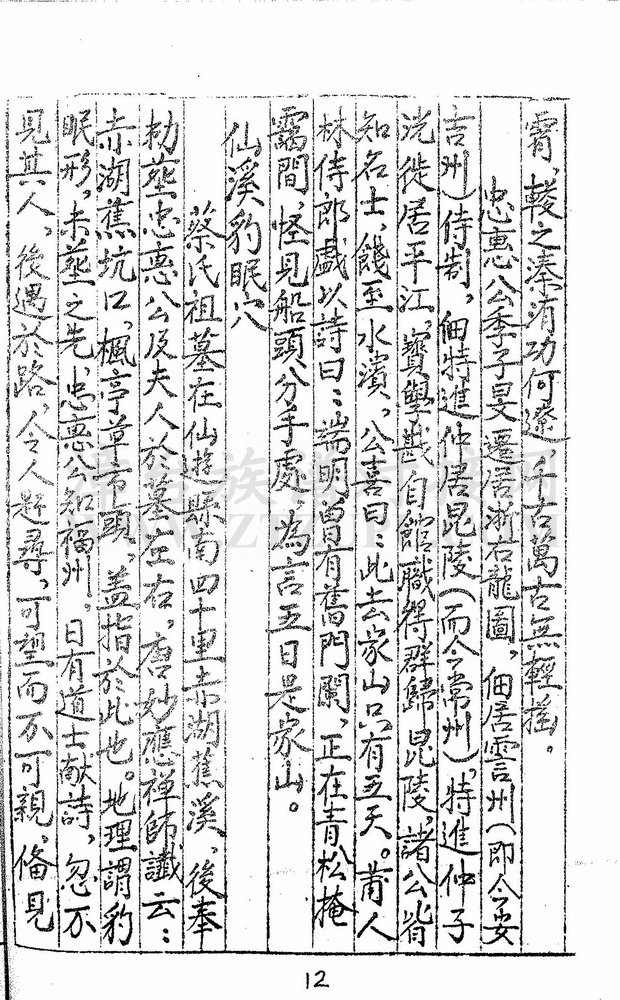 霄，較之溱洧功何遼，千古萬古無輕搖。
忠惠公季子旻遷居浙右龍圖，佃居雲州（即今安
吉州）侍制，佃特進仲居昆陵（而今常州），特進仲子
洸徙居平江，寶學戡自館職得群歸昆陵，諸公皆
知名士，餞至水濱，公喜曰：此去家山只有五天。莆人
林侍郎戲以詩曰：端明曾有舊門闌，正在青松掩
靄間，怪見船頭分手處，為言五日是家山。
仙溪豹眠穴
蔡氏祖墓在仙遊縣南四十里赤湖蕉溪，後奉
勅塟忠惠公及夫人於墓左右，唐妙應禅師讖云：
赤湖蕉坑口，楓亭草市頭，蓋指於此也。地理謂豹
眠形，未塟之先，忠惠公知福州，日有道士献詩，忽不
見其人，後遇於路，令人趕尋，可望而不可親，俻見
12